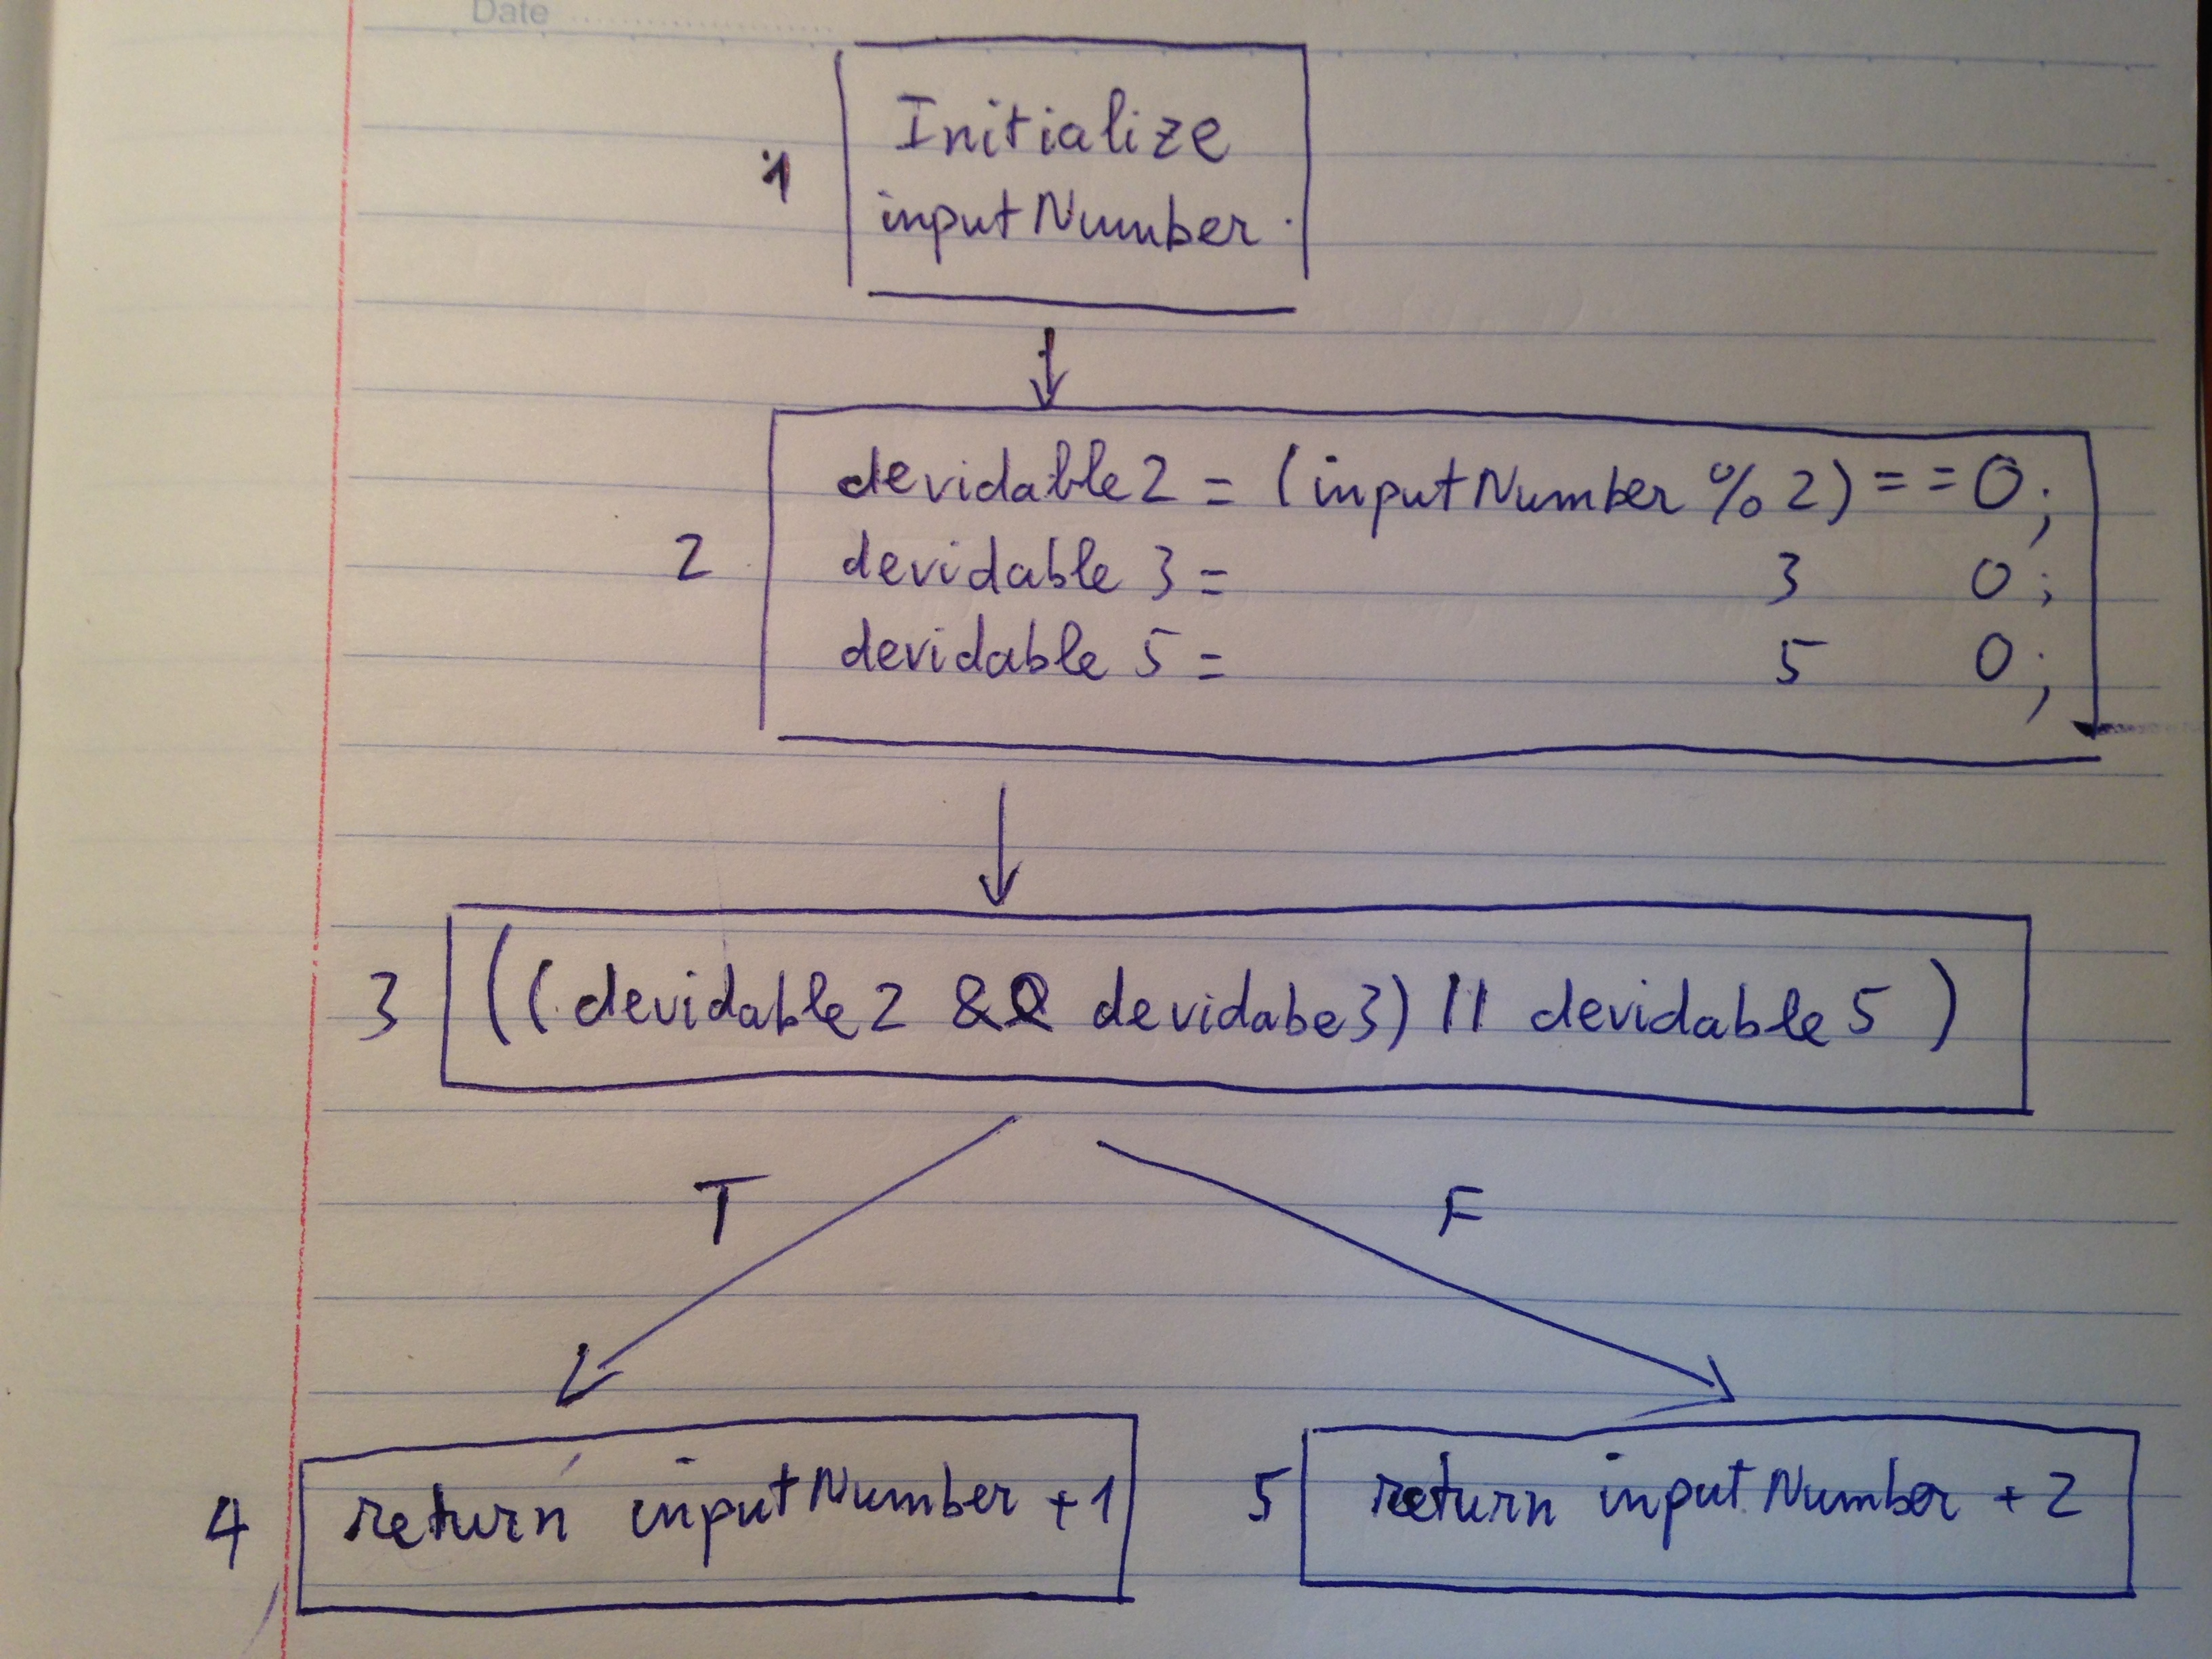 Date
1
Initialize
inputNumber
2
devidable2 = (inputNumber % 2) == 0;
devidable 3 = 3 0;
devidable 5 = 5 0;
3
((devidable2 && devidabe3) || devidable5)
T F
4
return inputNumber +1
5
return inputNumber + 2